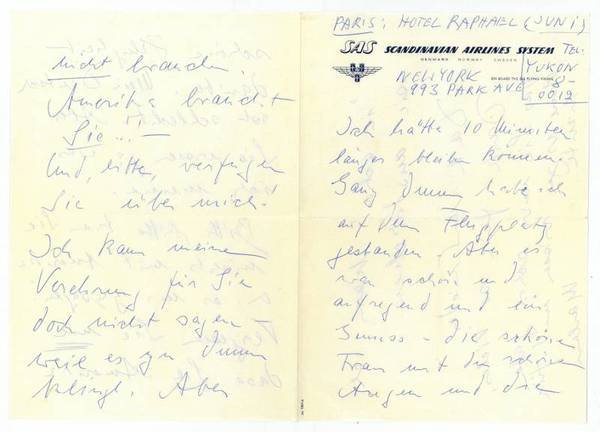 nicht brauchen.
Amerika braucht
Sie...! –
Und, bitte, verfügen
Sie über mich!
Ich kann meine
Verehrung für Sie
doch nicht sagen –
weil es zu dumm
klingt. Aber
PARIS: HOTEL RAPHAEL (JUNI)
SAS SCANDINAVIAN AIRLINES SYSTEM TEL:
DENMARK NORWAY SWEDEN
YUKON
NEW YORK
8-
993 PARK AVE
0012
Ich hätte 10 Minuten
länger bleiben können.
Ganz dumm habe ich
auf dem Flugplatz
gestanden. Aber es
war schön und
aufregend und ein
Genuss – die schöne
Frau mit den schönen
Augen und die